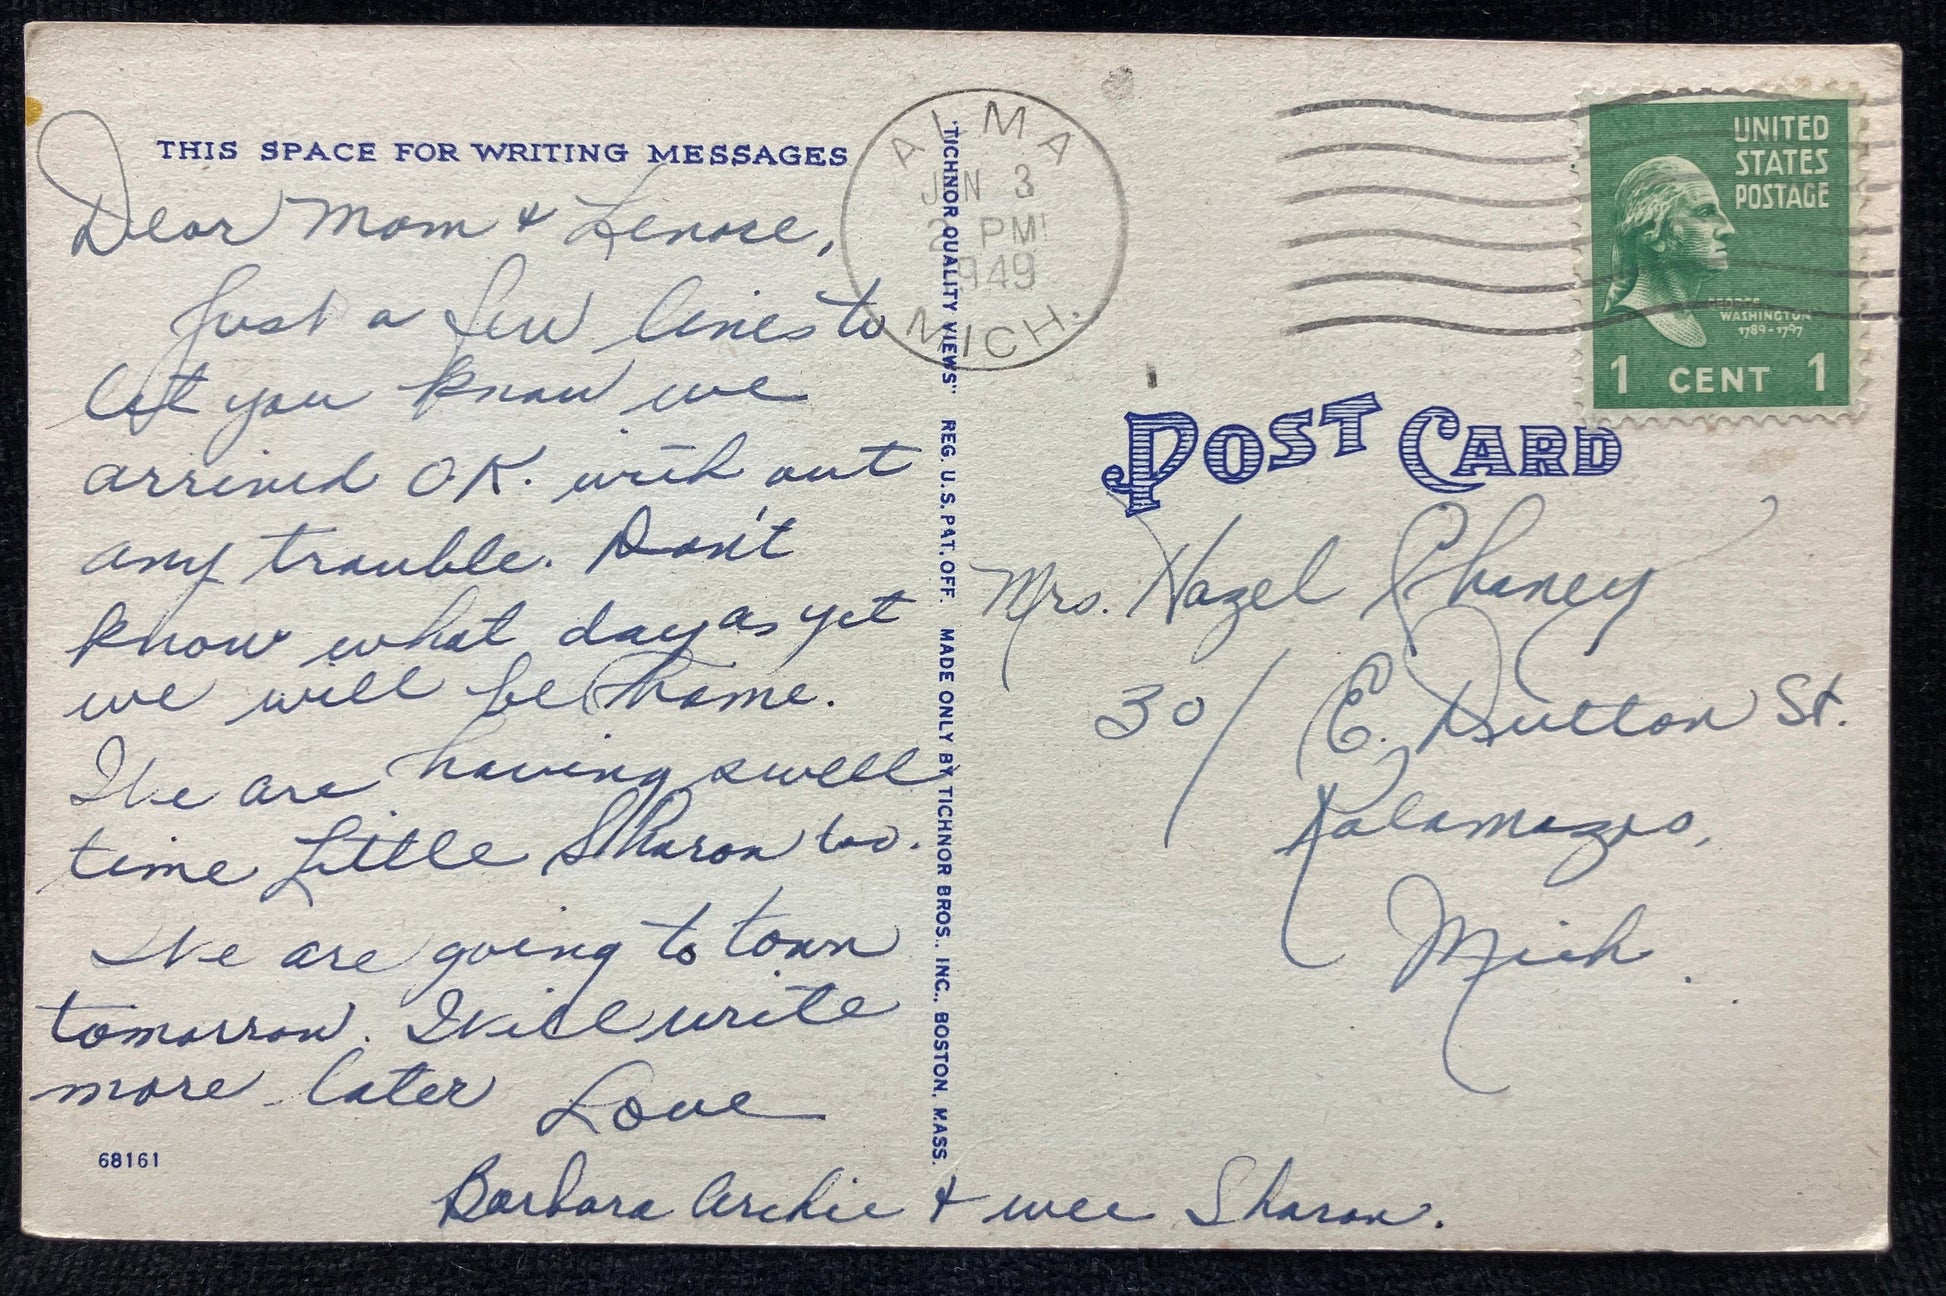 THIS SPACE FOR WRITING MESSAGES
Dear Mom & Lenore,
Just a few lines to
let you know we
arrived OK. with out
any trouble. Don't
know what day as yet
we will be home.
We are having swell
time Little Sharon too.
We are going to town
tomorrow. Will write
more later
Love
Barbara Archie & wee Sharon.
68161
"TICHNOR QUALITY VIEWS" REG. U.S. PAT. OFF. MADE ONLY BY TICHNOR BROS., INC., BOSTON, MASS.
ALMA
3
2 PM
1949
MICH.
UNITED
STATES
POSTAGE
GEORGE
WASHINGTON
1789-1797
1 CENT 1
POST CARD
Mrs. Hazel Chaney
301 E. Dutton St.
Kalamazoo,
Mich.